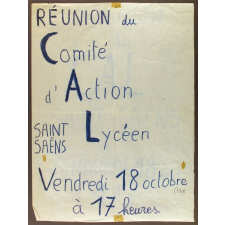 RÉUNION du
Comité
d'Action
SAINT
SAËNS
Lycéen
Vendredi 18 octobre
à 17 heures